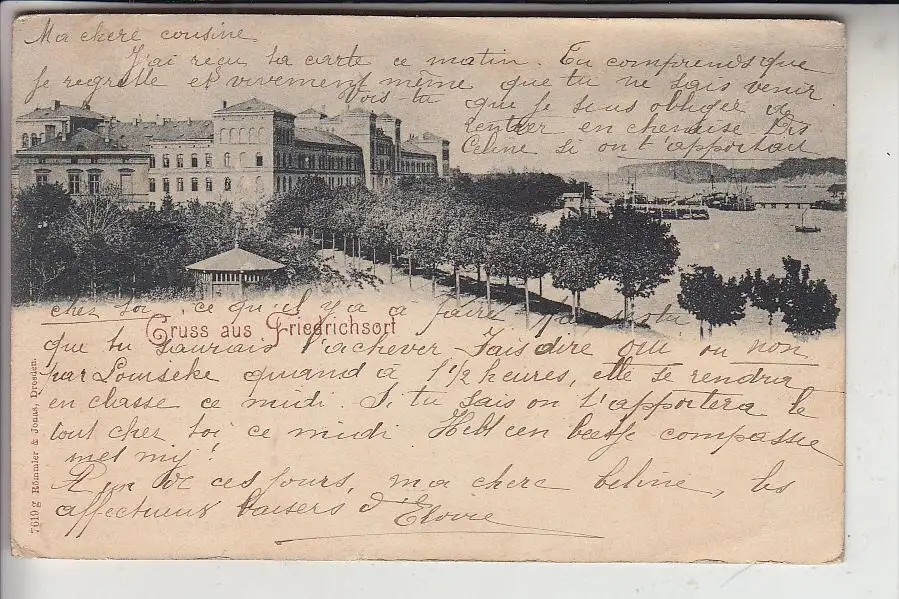 Ma chère cousine
J'ai reçu ta carte ce matin. Tu comprends que
je regrette et vivement même que tu ne sais venir
Vois-tu que je suis obligée de
rentrer en chemise
Céline si on t'apportait
chez toi, ce qu'il y a à faire
Gruss aus Friedrichsort
que tu saurais l'achever fais dire oui ou non
par Louiseke quand à 1 1/2 heures, elle se rendra
en classe ce midi. Si tu sais on t'apportera le
tout chez toi ce midi. Hebt een beetje compassie
met mij!
A un de ces jours, ma chère Céline, les
affectueux baisers d'Elvire
7619g Römmler & Jonas, Dresden.